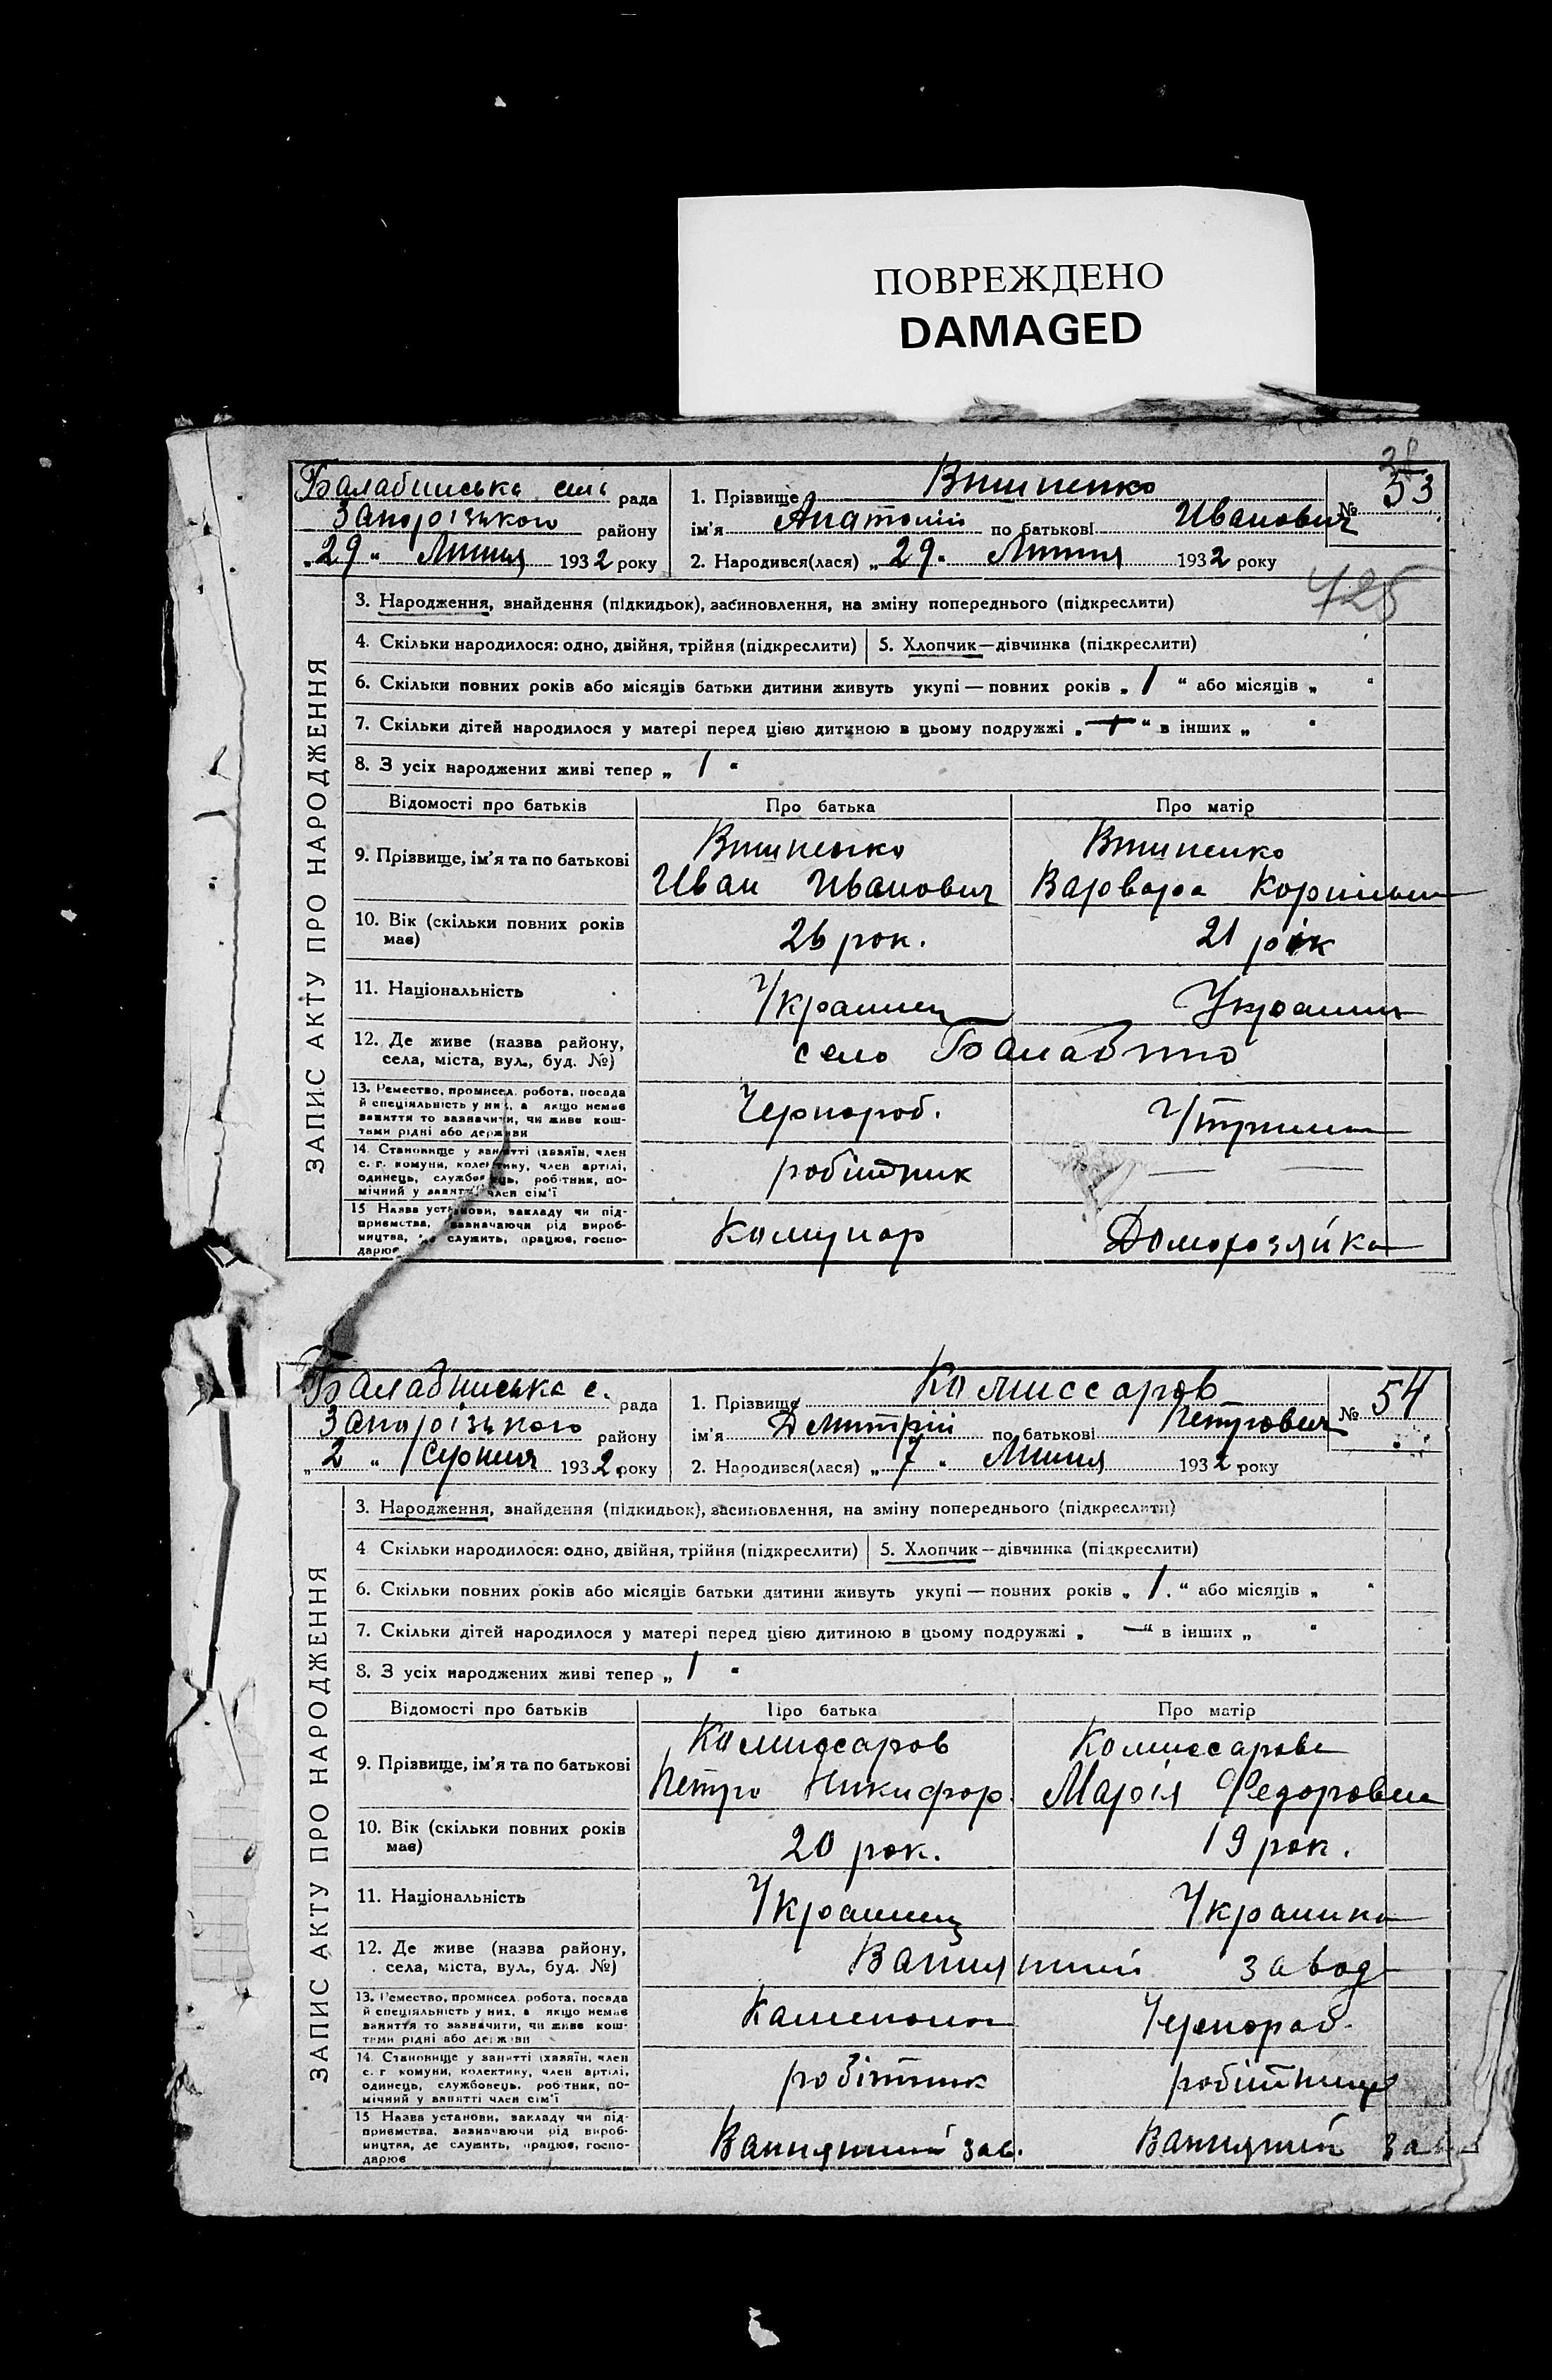 ПОВРЕЖДЕНО
DAMAGED
Балабинська сель рада
Запорізького району
„29“ Липня 1932 року
1. Прізвище
ім'я Анатолій по батькові Иванович
№ 53
2. Народився(лася) „29“ Липня 1932 року
425
ЗАПИС АКТУ ПРО НАРОДЖЕННЯ
3. Народження, знайдення (підкидьок), засиновлення, на зміну попереднього (підкреслити)
4. Скільки народилося: одно, двійня, трійня (підкреслити) 5. Хлопчик—дівчинка (підкреслити)
6. Скільки повних років або місяців батьки дитини живуть укупі — повних років „1“ або місяців „ “
7. Скільки дітей народилося у матері перед цією дитиною в цьому подружжі „ “ в інших „ “
8. З усіх народжених живі тепер „1“
Відомості про батьків Про батька Про матір
9. Прізвище, ім'я та по батькові
Иван Иванович Варвара
10. Вік (скільки повних років має) 26 рок. 21 рік
11. Національність Украинец Украинк
12. Де живе (назва району, села, міста, вул., буд. №) село Балабино
13. Ремество, промисел, робота, посада й спеціяльність у них, а якщо немає заняття то зазначити, чи живе коштами рідні або держави Чернороб.
14. Становище у занятті (хазяїн, член с.-г. комуни, колективу, член артілі, одинець, службовець, робітник, помічний у занятті член сім'ї робітник —
15 Назва установи, закладу чи підприємства, зазначаючи рід виробництва, де служить, працює, господарює Комунар Домохозяйка
Балабинська с. рада
Запорізького району
„2“ Серпня 1932 року
1. Прізвище Комиссаров
ім'я Дмитрій по батькові Петрович
№ 54
2. Народився(лася) „7“ Липня 1932 року
ЗАПИС АКТУ ПРО НАРОДЖЕННЯ
3. Народження, знайдення (підкидьок), засиновлення, на зміну попереднього (підкреслити)
4 Скільки народилося: одно, двійня, трійня (підкреслити) 5. Хлопчик—дівчинка (підкреслити)
6. Скільки повних років або місяців батьки дитини живуть укупі — повних років „1.“ або місяців „ “
7. Скільки дітей народилося у матері перед цією дитиною в цьому подружжі „ —“ в інших „ “
8. З усіх народжених живі тепер „1“
Відомості про батьків Про батька Про матір
9. Прізвище, ім'я та по батькові Комиссаров Комиссарова
Петро Никифор. Марія Федоровна
10. Вік (скільки повних років має) 20 рок. 19 рок.
11. Національність Украинец Украинка
12. Де живе (назва району, села, міста, вул., буд. №) завод
13. Ремество, промисел, робота, посада й спеціяльність у них, а якщо немає заняття то зазначити, чи живе коштами рідні або держави Чернороб.
14. Становище у занятті (хазяїн, член с.-г. комуни, колективу, член артілі, одинець, службовець, робітник, помічний у занятті член сім'ї робітник робітниця
15 Назва установи, закладу чи підприємства, зазначаючи рід виробництва, де служить, працює, господарює зав.